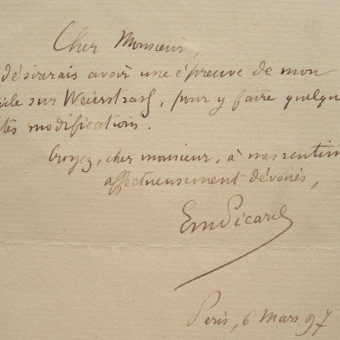 Cher Monsieur,
désirerais avoir une épreuve de mon
icle sur Weierstrass, pour y faire quelqu
tes modifications.
Croyez, cher monsieur, à mes sentim
affectueusement dévoués,
Em Picard
Paris, 6 Mars 97